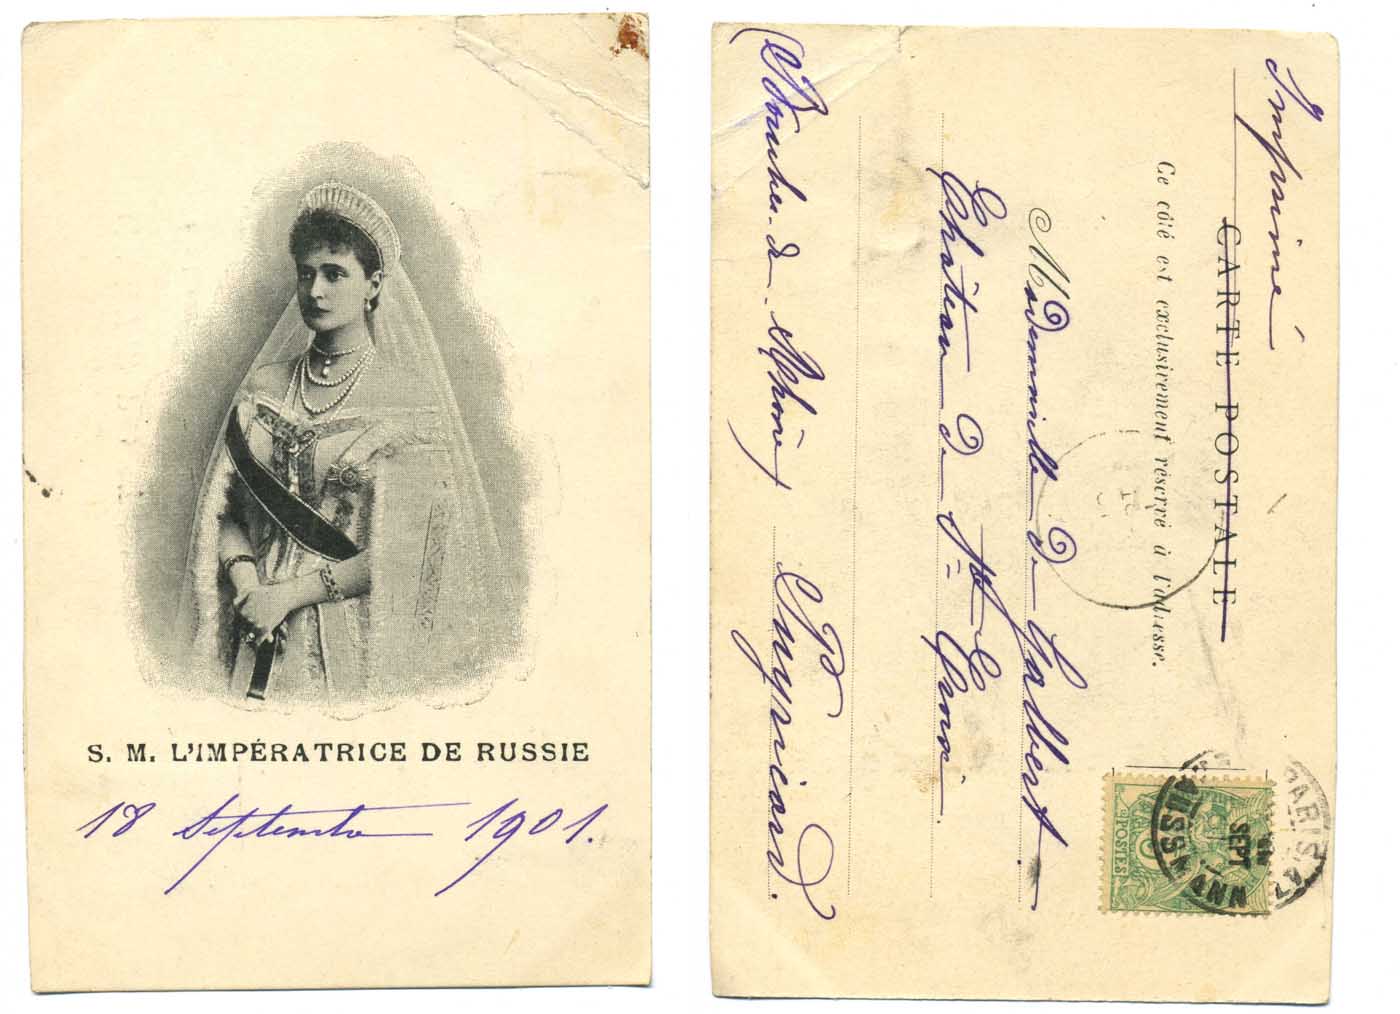 S. M. L'IMPÉRATRICE DE RUSSIE
18 Septembre 1901.
Imprimé
CARTE POSTALE
Ce côté est exclusivement réservé à l'adresse.
Mademoiselle de Galbert
Château de
Puyricard.
(Bouches-du-Rhône)
POSTES
PARIS 47
SEPT